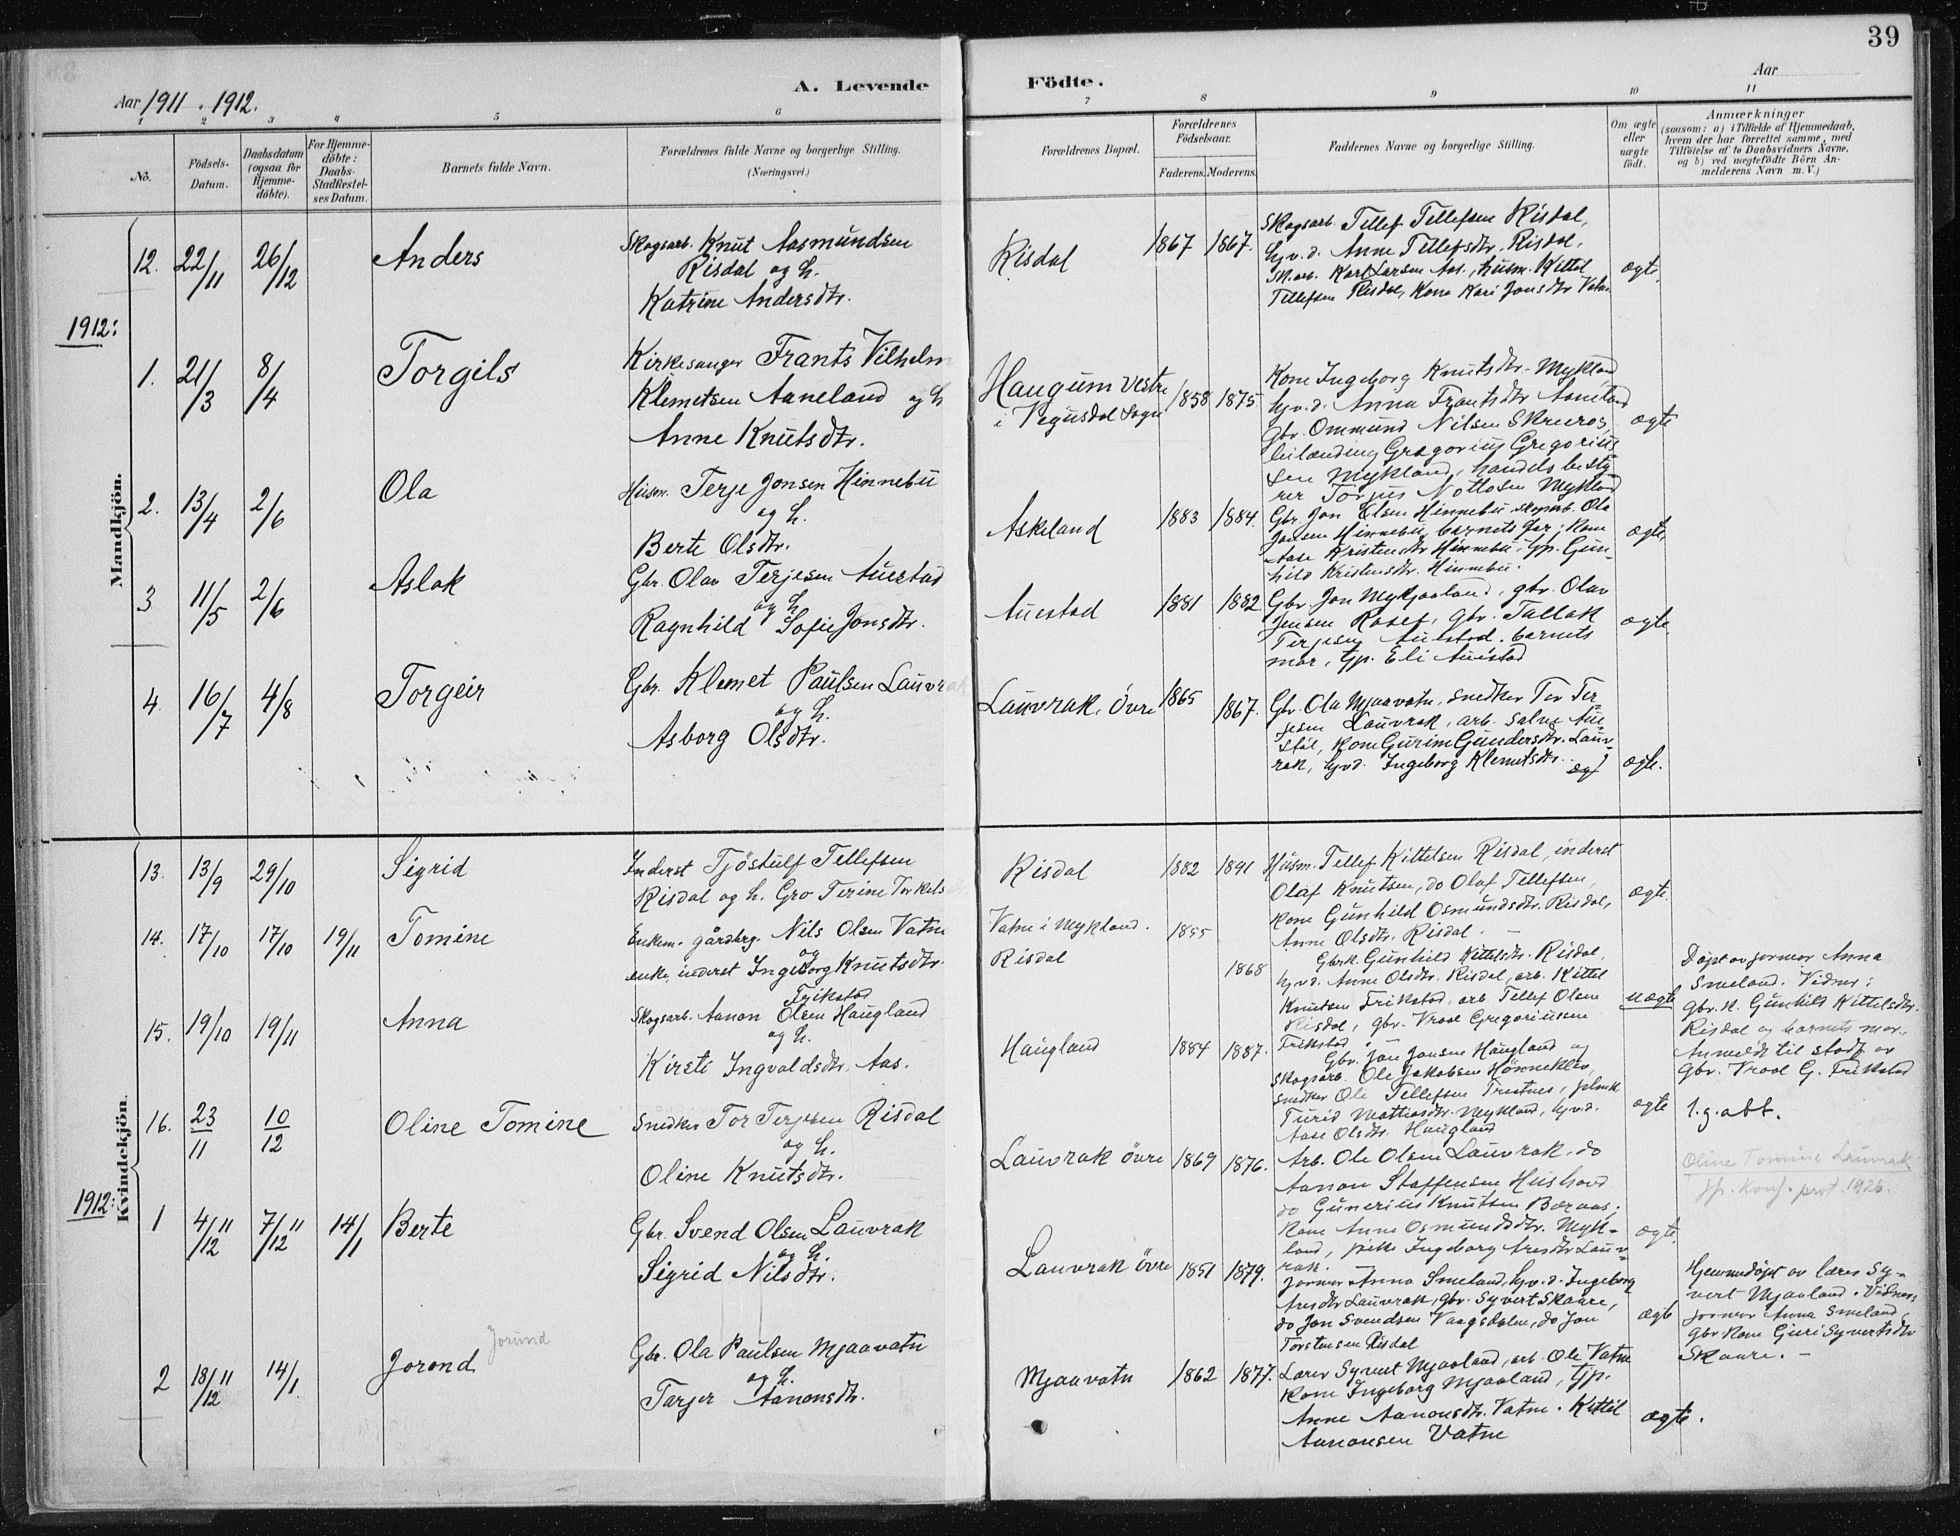 39
Aar 1911 . 1912.
A. Levende Födte.
Aar
1 2 3 4 5 6 7 8 9 10 11
No.
Födsels-Datum.
Daabsdatum (ogsaa for Hjemme-döbte).
For Hjemme-döbte: Daabs-Stadfæstel-ses Datum.
Barnets fulde Navn.
Forældrenes fulde Navne og borgerlige Stilling. (Næringsvei.)
Forældrenes Bopæl.
Forældrenes Födselsaar.
Faderens. Moderens.
Faddernes Navne og borgerlige Stilling.
Om ægte eller uægte födt.
Anmærkninger
(saasom: a) i Tilfælde af Hjemmedaab,
hvem der har forrettet samme, med
Tilföielse af to Daabsvidners Navne.
og b) ved uegtefödte Börn An-
melderens Navn m. V.)
Mandkjön.
12. 22/11 26/12 Anders
Skogsarb. Knut Aasmundsen
Risdal og h.
Katrine Andersdtr.
Risdal 1867 1867.
Skogsarb. Tellef Tellefsen Risdal,
hjv. d. Anne Tellefsdtr. Risdal,
sk.arb. Karl Larsen Aas, husm. Kittil
Tellefsen Risdal, Kone Kari Jonsdtr Vatne
ægte.
1912:
1. 21/3 8/4 Torgils
Kirkesanger Frants Vilhelm
Klemetsen Aaneland og h
Anne Knutsdtr.
Haugum vestre
i Vegusdal Sogn
1858 1875
Kone Ingeborg Knutsdtr. Mykland
hjv. d. Anna Frantsdtr Aaneland
Gbr. Ommund Nilsen Skreros,
leilænding Gregorius Gregorius
sen Mykland, handelsbesty
rer Torjus Nottosen Mykland
ægte
2. 13/4 2/6 Ola
Husm. Terje Jonsen Hinnebu
og h.
Berte Olsdtr.
Askeland 1883 1884.
Gbr. Jon Olsen Hinnebu skogarb. Ola
Jonsen Hinnebu, barnets far; Kone
Aase Kristensdtr Hinnebu, tjp. Gun-
hild Kristensdtr. Hinnebu.
ægte.
3 11/5 2/6 Aslak
Gbr. Olav Terjesen Auestad
og h
Ragnhild Sofie Jonsdtr.
Auestad 1881 1882
Gbr. Jon Mykjaaland, gbr. Olav
Jensen Roset, Gbr. Tallak
Terjesen Auestad. barnets
mor, tjp. Eli Auestad
ægte.
4. 16/7 4/8 Torgeir
Gbr. Klemet Paulsen Lauvrak
og h.
Asborg Olsdtr.
Lauvrak, övre 1865 1867.
Gbr. Ola Mjaavatn, snedker Tor Ter-
jesen Lauvrak, arb. Salve Aue-
stöl, Kone Gurine Gundersdtr. Lauv-
rak, hjvd. Ingeborg Klemetsdtr.
ægte.
Kvindekjön.
13. 13/9 29/10 Sigrid
Inderst Tjöstulf Tellefsen
Risdal og h. Gro Terine Terkels
Risdal 1882 1891
Husm. Tellef Kittelsen Risdal, inderst
Olaf Knutsen, do Olaf Tellefsen,
Kone Gunhild Osmundsdtr. Risdal,
Anne Olsdtr. Risdal.
ægte.
14. 17/10 17/10 19/11 Tomine
Enkem. gårdbrg. Nils Olsen Vatne
og
enke, inderst Ingeborg Knutsdtr.
Frikstad
Vatne i Mykland. 1855 –
Risdal 1868
Gbrk. Gunhild Kittelsdtr. Risdal,
hjv. d. Anne Olsdtr. Risdal, arb. Kittel
Knutsen Frikstad, arb. Tellef Olsen
Risdal, gbr. Vraal Gregoriussen
Frikstad.
uægte
Döpt av jormor Anna
Smeland. Vidner:
Gbr. K. Gunhild Kittelsdtr.
Risdal og barnets mor.
Anmeldt til stadf. av
Gbr. Vraal G. Frikstad
15. 19/10 19/11 Anna
Skogsarb. Aanon Olsen Haugland
og h.
Kirsti Ingvaldsdtr. Aas.
Haugland 1884 1887.
Gbr. Jon Jonsen Haugland og
Skogsarb. Ole Jakobsen Hönneklev,
snedker Ole Tellefsen Trutnes, pleuk
Turid Mattiasdtr. Mykland, hjvd.
Aase Olsdtr. Haugland
ægte 1.g.att.
16. 23/11 10/12 Oline Tomine
Snedker Tor Terjesen Risdal
og h.
Oline Knutsdtr.
Lauvrak övre 1869 1876.
Arb. Ole Olsen Lauvrak. do
Aanon Staffensen Hushovd
do Gunerius Knutsen Beraas,
Kone Anne Osmundsdtr. Myk-
land, pike Ingeborg Aresdtr Lauv-
rak.
ægte.
Oline Tomine Lauvrak
jfr. Konf. prot. 1926.
1912:
1 4/12 11 7/12 11 14/1 Berte
Gbr. Svend Olsen Lauvrak
og h.
Sigrid Nilsdtr.
Lauvrak övre 1851 1879.
Jormor Anna Smeland, hjv. d. Ingeborg
Aresdtr Lauvrak, gbr. Syvert Skaare,
do Jon Svendsen Vaagsdalen, do Jon
Torstensen Risdal
ægte
Hjemmedöpt av lærer Sy-
vert Mjaaland. Vidner:
jormor Anna Smeland,
Gbr Kone Guri Syvertsdtr
Skaare. –
2 18/12 11 14/1 Jorond
Jorund
Gbr. Ola Paulsen Mjaavatn
og h.
Tarjer Aanonsdtr.
Mjaavatn 1862 1877.
Lærer Syvert Mjaaland, arb. Ole Vatne
Kone Ingeborg Mjaaland, tjp.
Anne Aanonsdtr. Vatne. Kittil
Aanonsen Vatne
ægte.